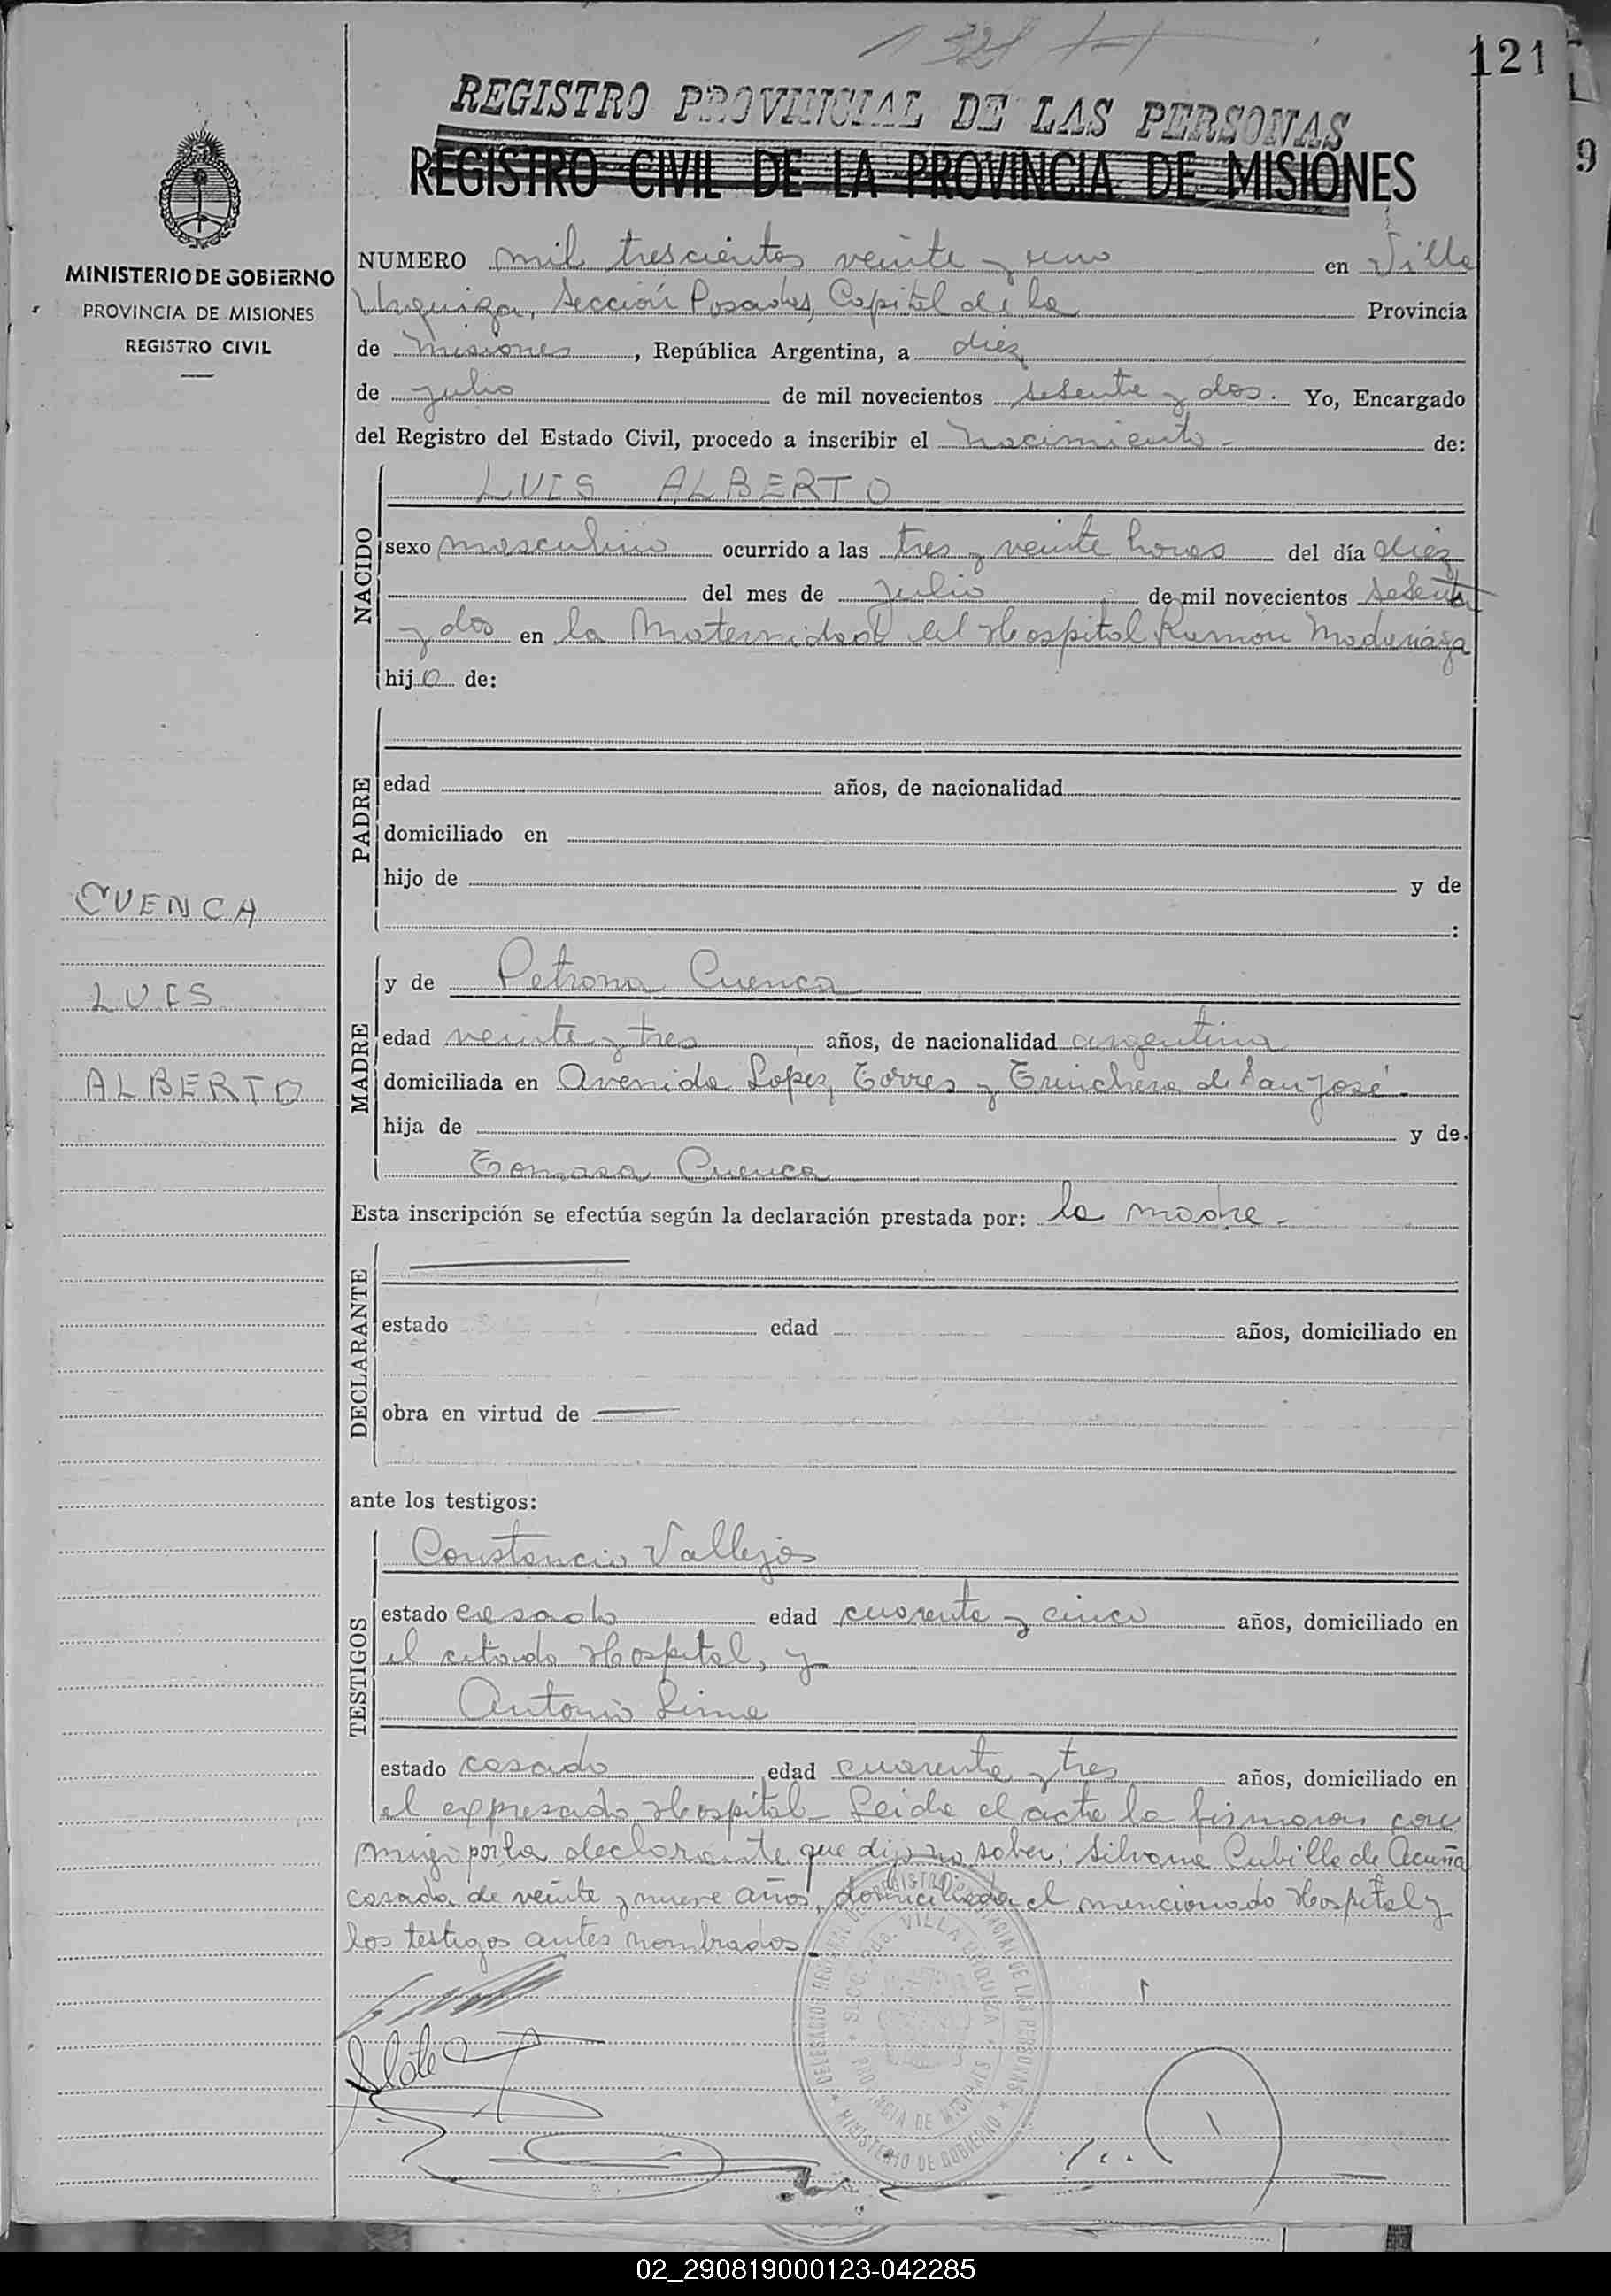 1321
121
9
REGISTRO PROVINCIAL DE LAS PERSONAS
REGISTRO CIVIL DE LA PROVINCIA DE MISIONES
MINISTERIO DE GOBIERNO
PROVINCIA DE MISIONES
REGISTRO CIVIL
NUMERO mil trescientos veinte y uno en Villa
Urquiza, Sección Posadas, Capital de la Provincia
de Misiones, República Argentina, a diez
de julio de mil novecientos sesenta y dos. Yo, Encargado
del Registro del Estado Civil, procedo a inscribir el nacimiento - de:
NACIDO
LUIS ALBERTO
sexo masculino ocurrido a las tres y veinte horas del día diez
del mes de julio de mil novecientos sesenta
y dos en la Maternidad del Hospital Ramón Madariaga
hijo de:
PADRE
edad años, de nacionalidad
domiciliado en
hijo de y de
:
CUENCA
LUIS
ALBERTO
MADRE
y de Petrona Cuenca
edad veinte y tres años, de nacionalidad argentina
domiciliada en Avenida Lopez Torres y Trinchera de San José.
hija de y de
Tomasa Cuenca
Esta inscripción se efectúa según la declaración prestada por: la madre.
DECLARANTE
estado edad años, domiciliado en
obra en virtud de
ante los testigos:
TESTIGOS
Constancio Vallejos
estado casado edad cuarenta y cinco años, domiciliado en
el citado Hospital, y
Antonio Lima
estado casado edad cuarenta y tres años, domiciliado en
el expresado Hospital - Leida el acta la firmaron con
migo por la declarante que dijo no saber, Silvana Cubilla de Acuña
casada de veinte y nueve años, domiciliada el mencionado Hospital y
los testigos antes nombrados.
DELEGACION REGISTRO PROVINCIAL DE LAS PERSONAS
SECC. 2da. VILLA URQUIZA
PROVINCIA DE MISIONES
MINISTERIO DE GOBIERNO
02_290819000123-042285